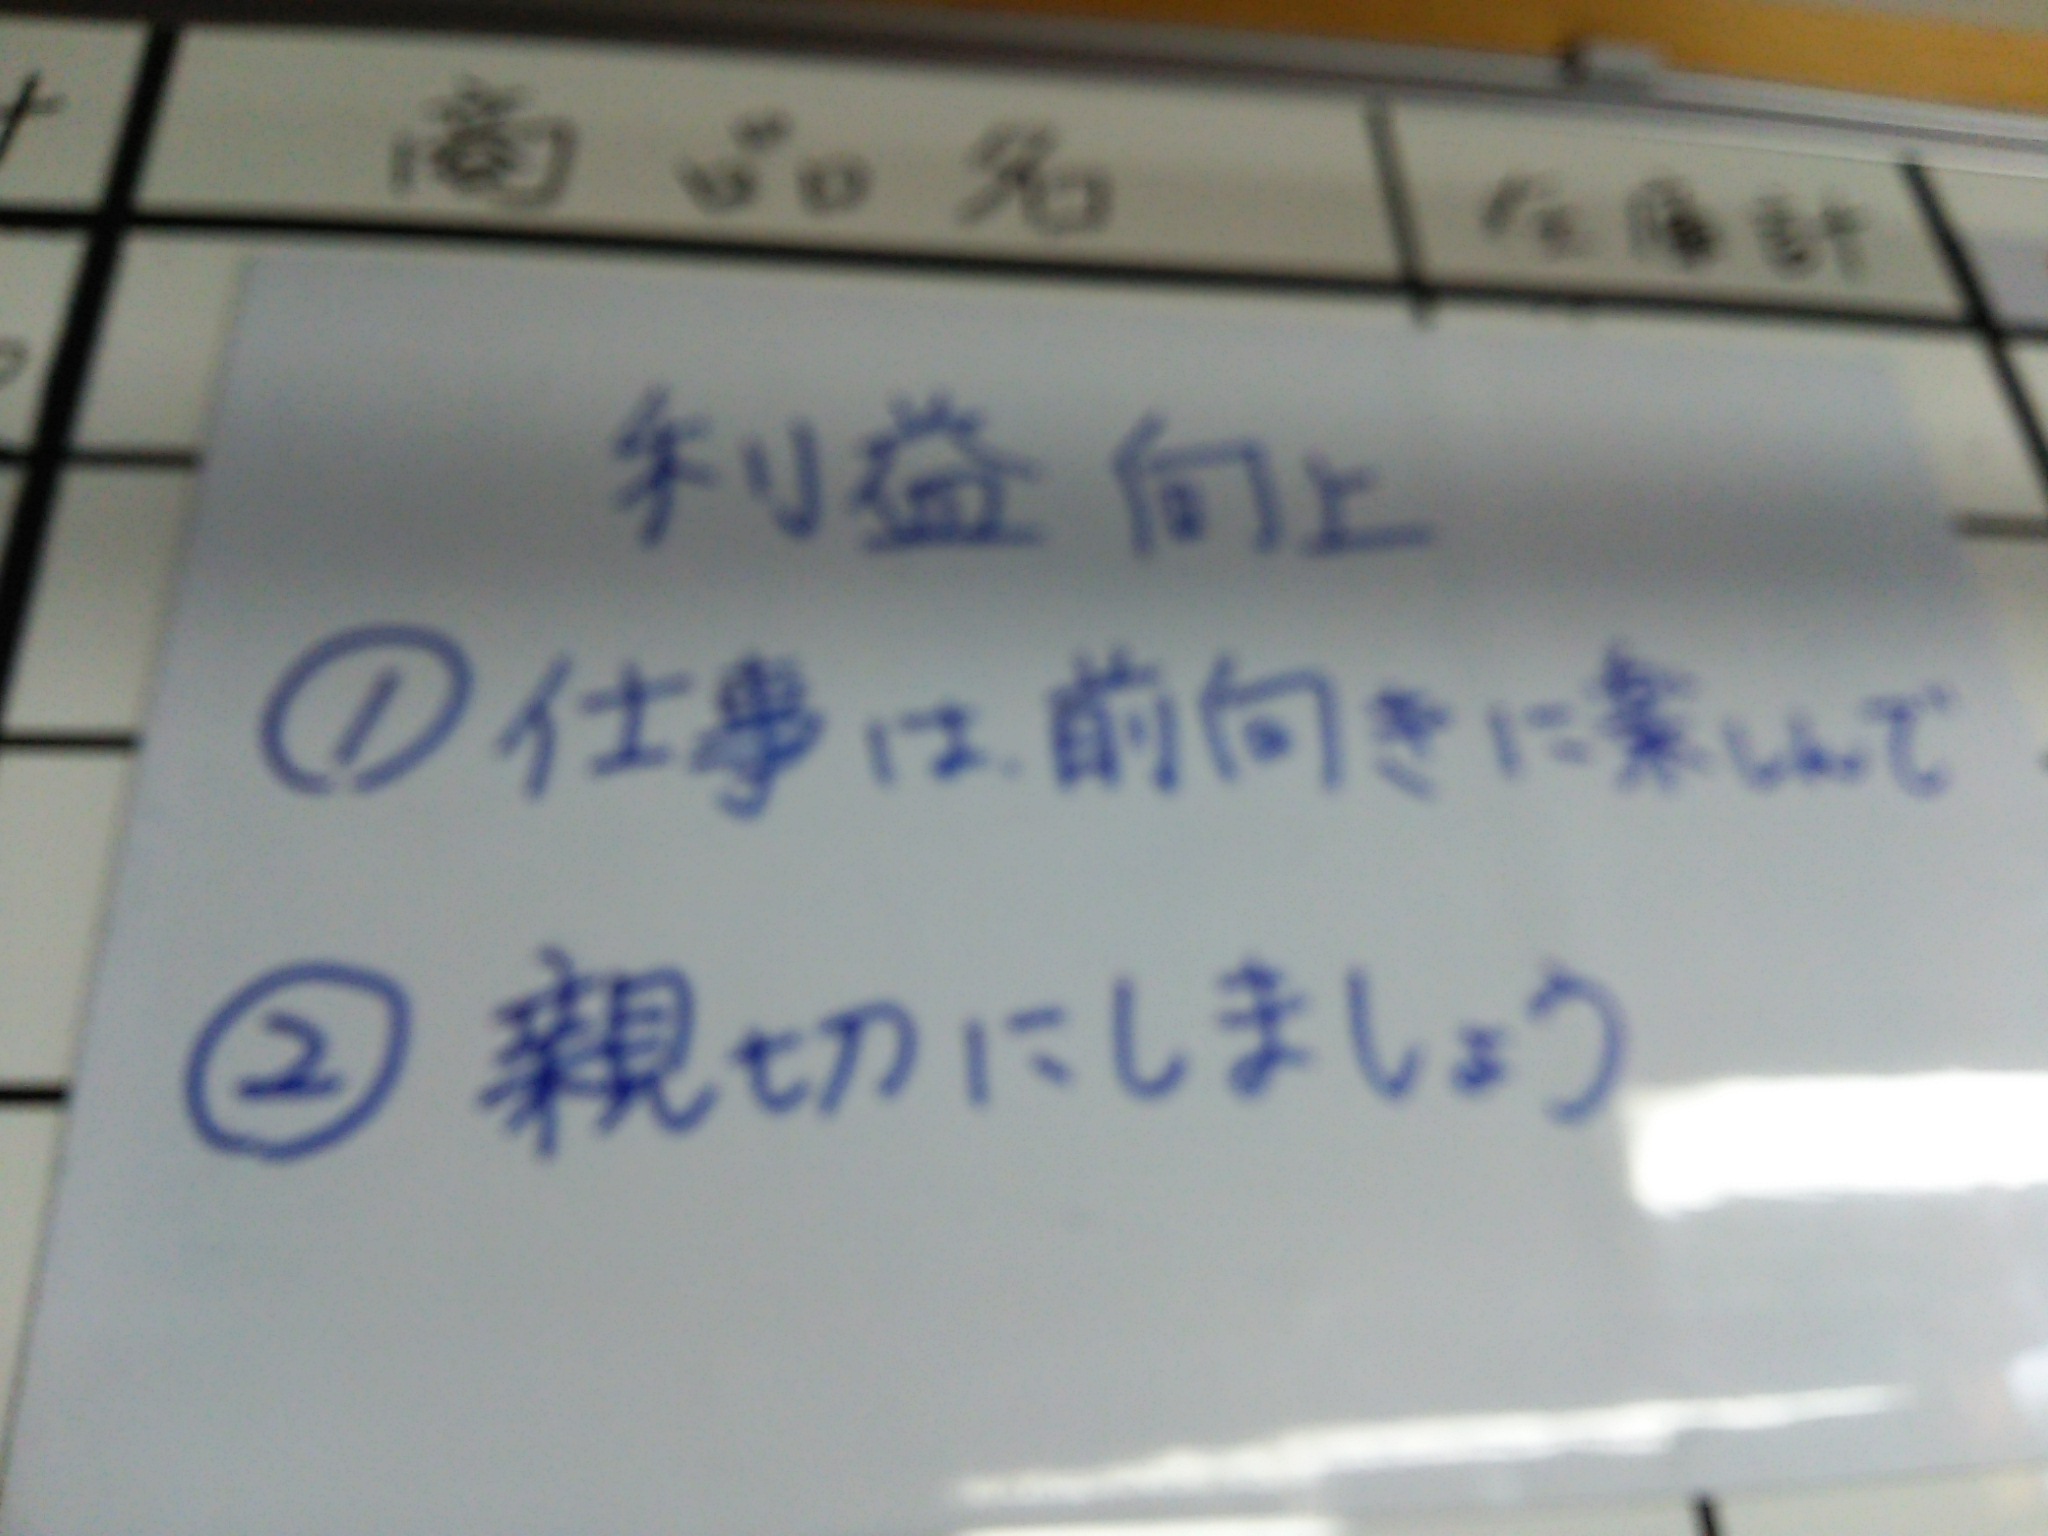 商品名 在庫計
利益向上
① 仕事は前向きに楽しんで
② 親切にしましょう